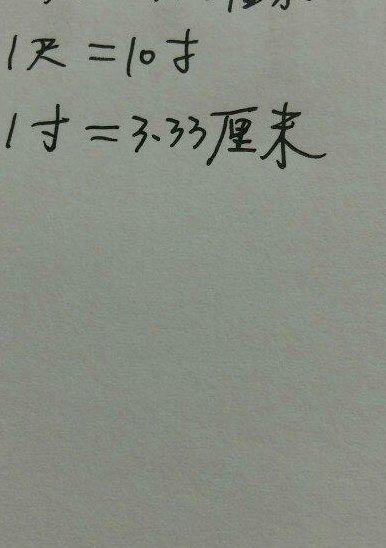 1尺=10寸
1寸=3.33厘米